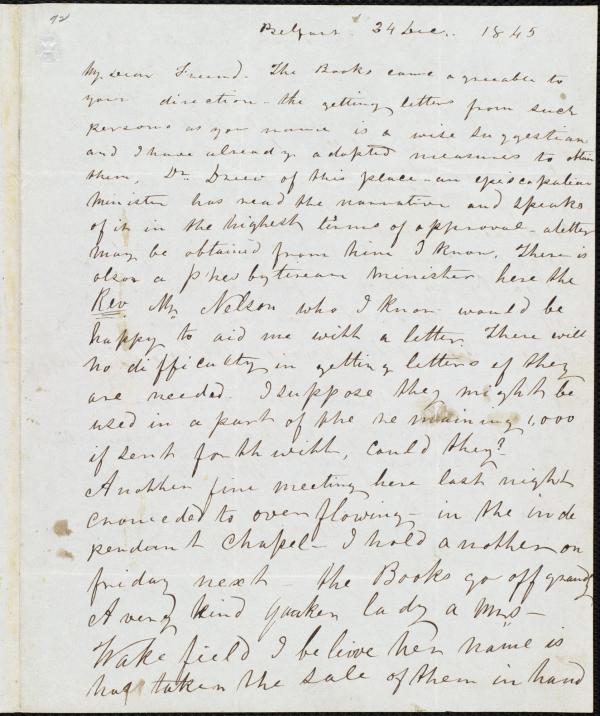 92
Belfast 24 Dec. 1845
My Dear Friend. The Books came agreeable to
your direction - the getting letters from such
persons as you name is a wise suggestion
and I have already adopted measures to obtain
them, Dr. Drew of this place - an episcopalian
minister has read the narrative and speaks
of it in the highest terms of approval - a letter
may be obtained from him I know. There is
also a presbyterean minister here the
Rev. Mr Nelson who I know would be
happy to aid me with a letter. There will
no difficulty in getting letters if they
are needed. I suppose they might be
used in a part of the remaining 1,000
if sent forthwith, could they?
Another fine meeting here last night
crowded to overflowing - in the inde
pendant Chapel - I hold another on
friday next - the Books go off grandly
A very kind quaker lady a Mrs -
Wakefield I believe her name is
has taken the sale of them in hand